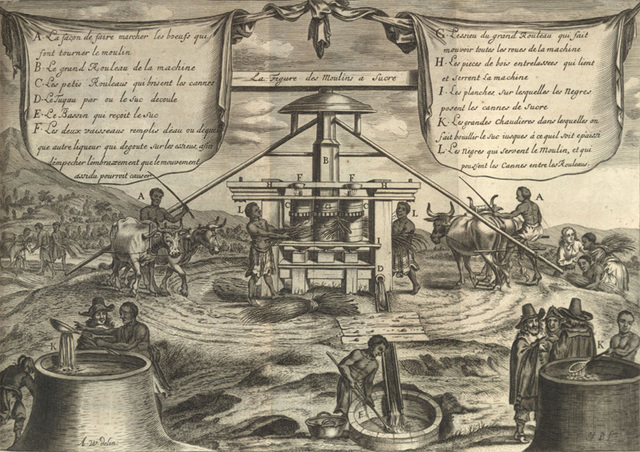 A · La façon de faire marcher les boeufs qui
font tourner le moulin
B · Le grand Rouleau de la machine
C · Les petis Rouleaus qui brisent les cannes
D · Le Tuyau par ou le Suc decoule
E · Le Bassin qui reçoit le suc
F · Les deux vaisseaus remplis d'eau ou de que
que autre liqueur qui degoute sur les aissieus, afin
d'empecher l'embrasement que le mouvement
assidu pourroit causer
La Figure des Moulins a Sucre
G · L'essieu du grand Rouleau qui fait
mouvoir toutes les roues de la machine
H · Les pieces de bois entrelassees qui lient
et serrent La machine
I · Les planches sur lesquelles les Negres
posent les cannes de Sucre
K · Les grandes Chaudieres dans lesquelles on
fait bouillir le Suc iusques a ce qu'il soit epaissi
L · Les Negres qui servent le Moulin, et qui
poussent les Cannes entre les Rouleaus
A
A
B
H
F
F
H
L
C
L
I
D
K
K
E